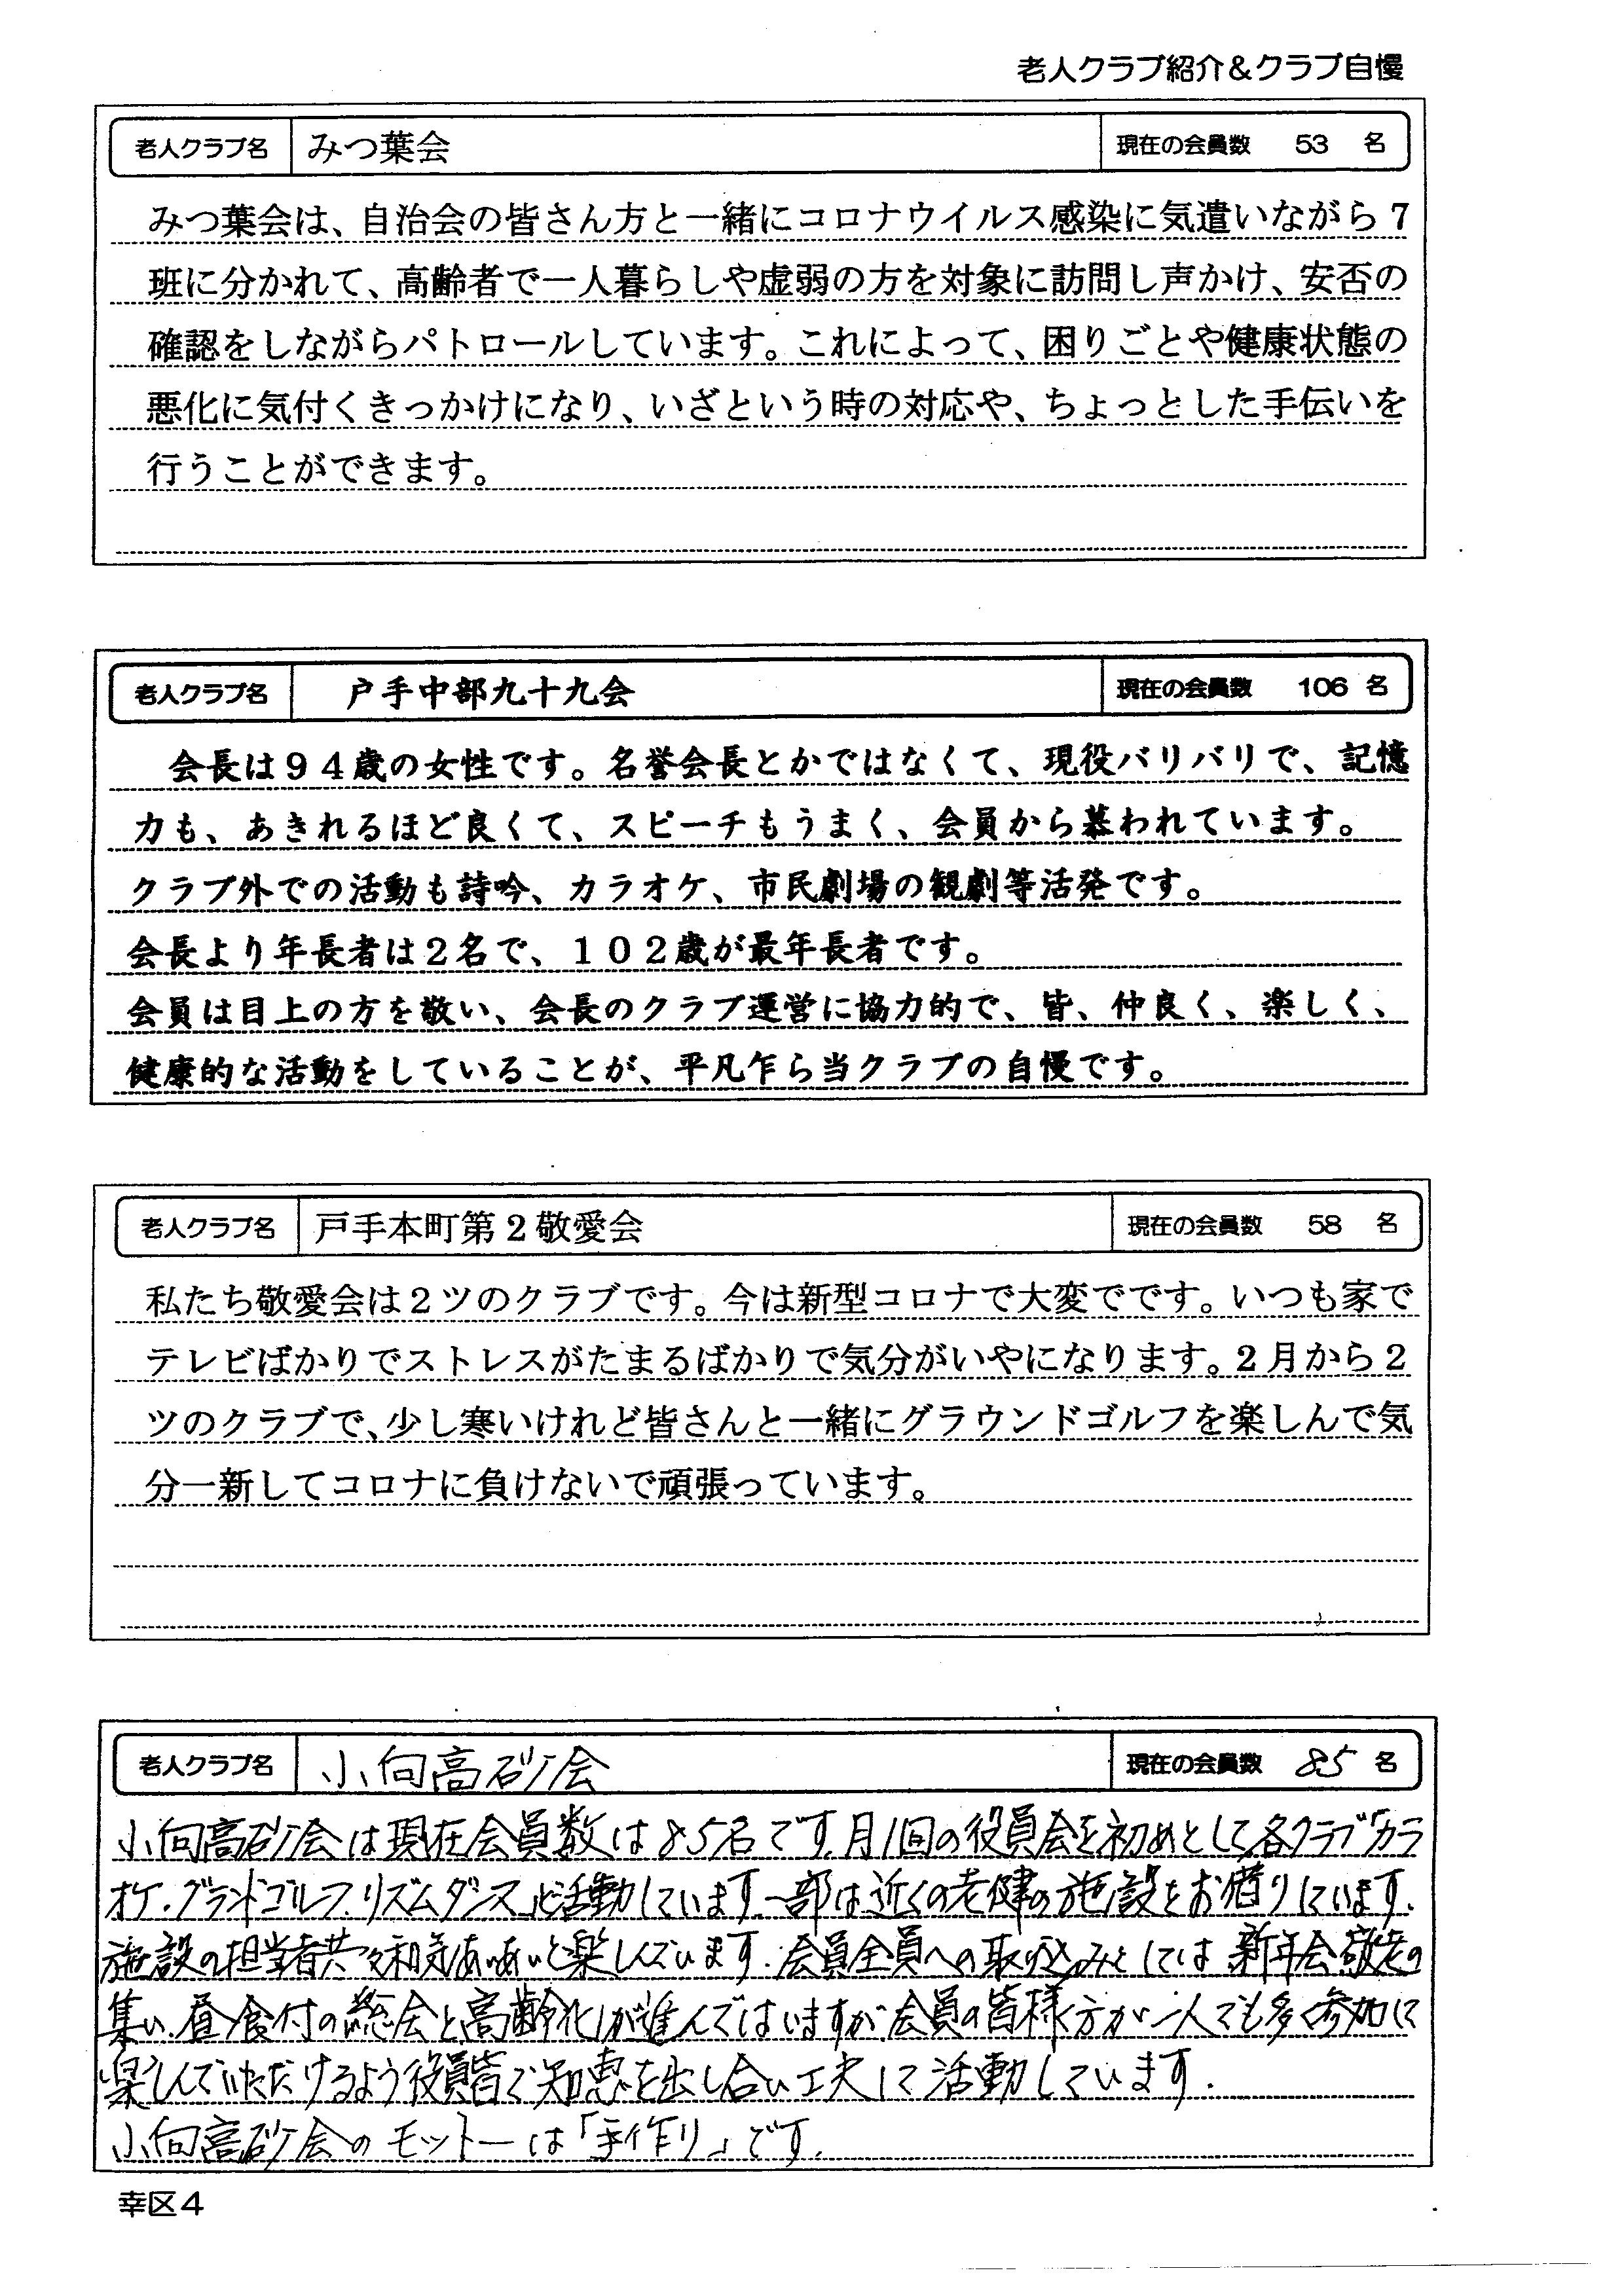 老人クラブ紹介&クラブ自慢
老人クラブ名 みつ葉会 現在の会員数 53 名
みつ葉会は、自治会の皆さん方と一緒にコロナウイルス感染に気遣いながら7
班に分かれて、高齢者で一人暮らしや虚弱の方を対象に訪問し声かけ、安否の
確認をしながらパトロールしています。これによって、困りごとや健康状態の
悪化に気付くきっかけになり、いざという時の対応や、ちょっとした手伝いを
行うことができます。
老人クラブ名 戸手中部九十九会 現在の会員数 106 名
会長は94歳の女性です。名誉会長とかではなくて、現役バリバリで、記憶
力も、あきれるほど良くて、スピーチもうまく、会員から慕われています。
クラブ外での活動も詩吟、カラオケ、市民劇場の観劇等活発です。
会長より年長者は2名で、102歳が最年長者です。
会員は目上の方を敬い、会長のクラブ運営に協力的で、皆、仲良く、楽しく、
健康的な活動をしていることが、平凡乍ら当クラブの自慢です。
老人クラブ名 戸手本町第2敬愛会 現在の会員数 58 名
私たち敬愛会は2ツのクラブです。今は新型コロナで大変でです。いつも家で
テレビばかりでストレスがたまるばかりで気分がいやになります。2月から2
ツのクラブで、少し寒いけれど皆さんと一緒にグラウンドゴルフを楽しんで気
分一新してコロナに負けないで頑張っています。
老人クラブ名 小向高砂会 現在の会員数 85 名
小向高砂会は現在会員数は85名です。月1回の役員会を初めとして各クラブ「カラ
オケ・グランドゴルフ・リズムダンス」と活動しています。一部は近くの老健の施設をお借りしています。
施設の担当者共々和気あいあいと楽しんでいます。会員全員への取り込みとしては新年会、敬老の
集い、昼食付の総会と高齢化が進んではいますが会員の皆様方が一人でも多く参加して
楽しんでいただけるよう役員皆で知恵を出し合い工夫して活動しています。
小向高砂会のモットーは「手作り」です。
幸区4